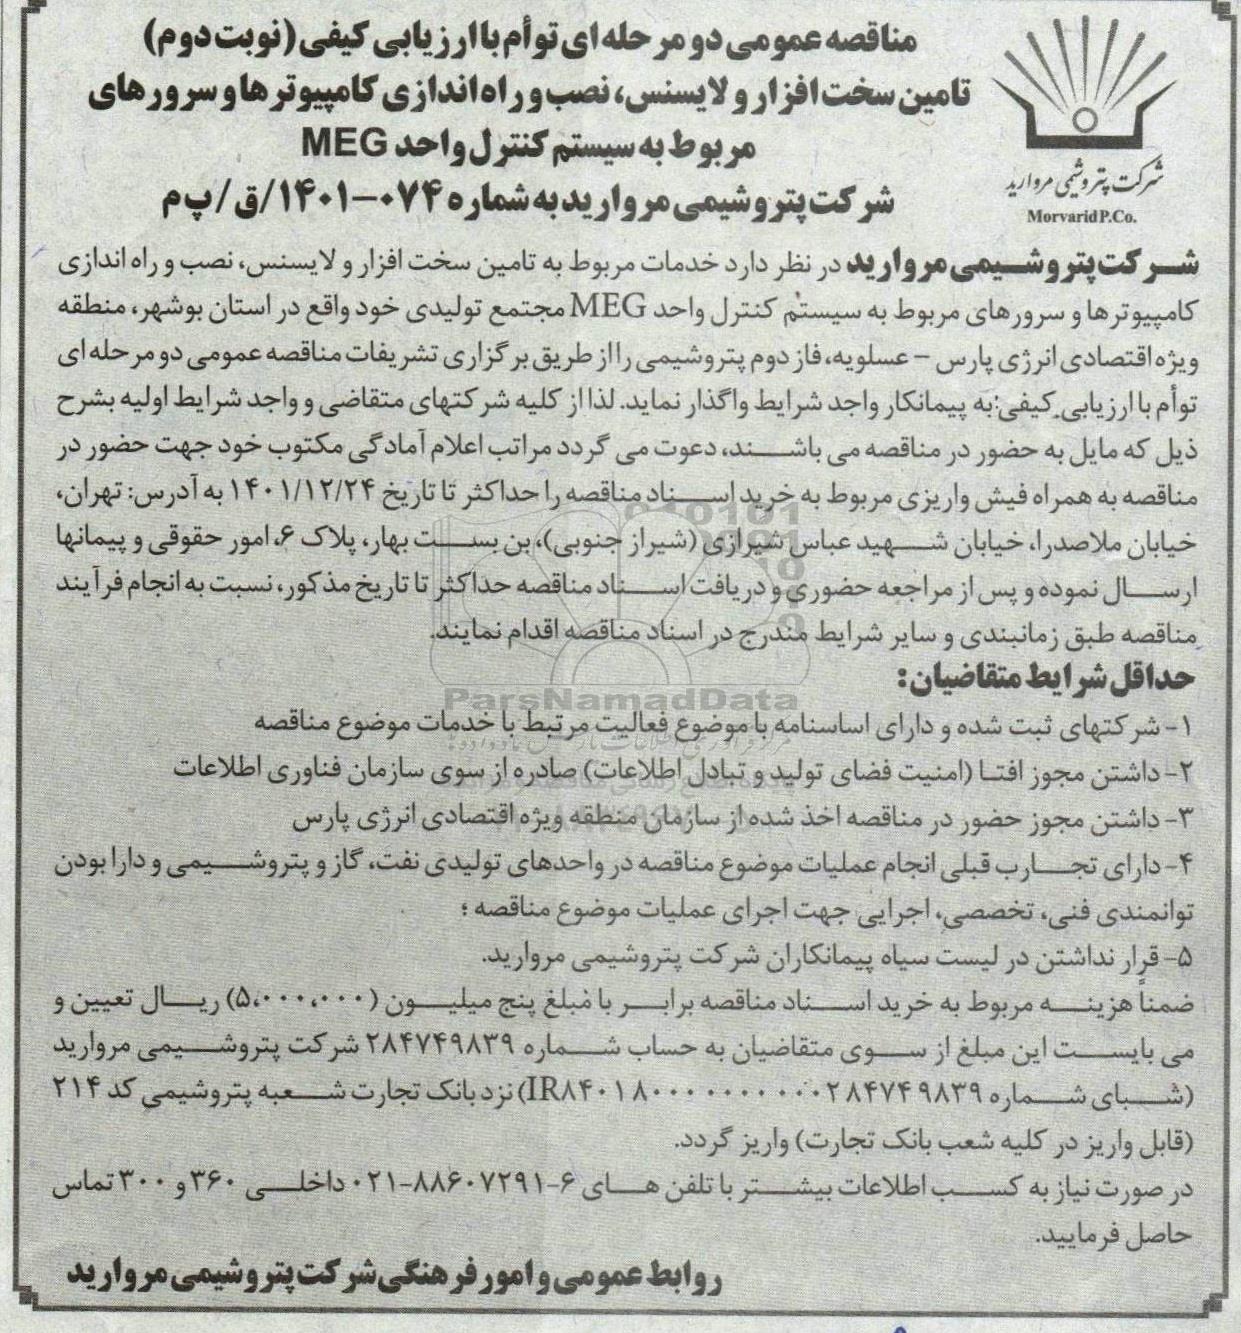 مناقصه عمومی دو مرحله ای توأم با ارزیابی کیفی (نوبت دوم)
تامین سخت افزار و لایسنس، نصب و راه اندازی کامپیوترها و سرورهای
مربوط به سیستم کنترل واحد MEG
شرکت پتروشیمی مروارید به شماره ۰۷۴-۱۴۰۱/ق/پ م
شرکت پتروشیمی مروارید
Morvarid P.Co.
شرکت پتروشیمی مروارید در نظر دارد خدمات مربوط به تامین سخت افزار و لایسنس، نصب و راه اندازی
کامپیوترها و سرورهای مربوط به سیستم کنترل واحد MEG مجتمع تولیدی خود واقع در استان بوشهر، منطقه
ویژه اقتصادی انرژی پارس – عسلویه، فاز دوم پتروشیمی را از طریق برگزاری تشریفات مناقصه عمومی دو مرحله ای
توأم با ارزیابی کیفی؛ به پیمانکار واجد شرایط واگذار نماید. لذا از کلیه شرکتهای متقاضی و واجد شرایط اولیه بشرح
ذیل که مایل به حضور در مناقصه می باشند، دعوت می گردد مراتب اعلام آمادگی مکتوب خود جهت حضور در
مناقصه به همراه فیش واریزی مربوط به خرید اسناد مناقصه را حداکثر تا تاریخ ۱۴۰۱/۱۲/۲۴ به آدرس: تهران،
خیابان ملاصدرا، خیابان شهید عباس شیرازی (شیراز جنوبی)، بن بست بهار، پلاک ۶، امور حقوقی و پیمانها
ارسال نموده و پس از مراجعه حضوری و دریافت اسناد مناقصه حداکثر تا تاریخ مذکور، نسبت به انجام فرآیند
مناقصه طبق زمانبندی و سایر شرایط مندرج در اسناد مناقصه اقدام نمایند.
ParsNamadData
حداقل شرایط متقاضیان:
۱- شرکتهای ثبت شده و دارای اساسنامه با موضوع فعالیت مرتبط با خدمات موضوع مناقصه
۲- داشتن مجوز افتا (امنیت فضای تولید و تبادل اطلاعات) صادره از سوی سازمان فناوری اطلاعات
۳- داشتن مجوز حضور در مناقصه اخذ شده از سازمان منطقه ویژه اقتصادی انرژی پارس
۴- دارای تجارب قبلی انجام عملیات موضوع مناقصه در واحدهای تولیدی نفت، گاز و پتروشیمی و دارا بودن
توانمندی فنی، تخصصی، اجرایی جهت اجرای عملیات موضوع مناقصه ؛
۵- قرار نداشتن در لیست سیاه پیمانکاران شرکت پتروشیمی مروارید.
ضمناً هزینه مربوط به خرید اسناد مناقصه برابر با مبلغ پنج میلیون (۵،۰۰۰،۰۰۰) ریال تعیین و
می بایست این مبلغ از سوی متقاضیان به حساب شماره ۲۸۴۷۴۹۸۳۹ شرکت پتروشیمی مروارید
(شبای شماره IR۸۴۰۱۸۰۰۰۰۰۰۰۰۰۰۰۲۸۴۷۴۹۸۳۹) نزد بانک تجارت شعبه پتروشیمی کد ۲۱۴
(قابل واریز در کلیه شعب بانک تجارت) واریز گردد.
در صورت نیاز به کسب اطلاعات بیشتر با تلفن های ۶-۸۸۶۰۷۲۹۱-۰۲۱ داخلی ۳۶۰ و ۳۰۰ تماس
حاصل فرمایید.
روابط عمومی و امور فرهنگی شرکت پتروشیمی مروارید